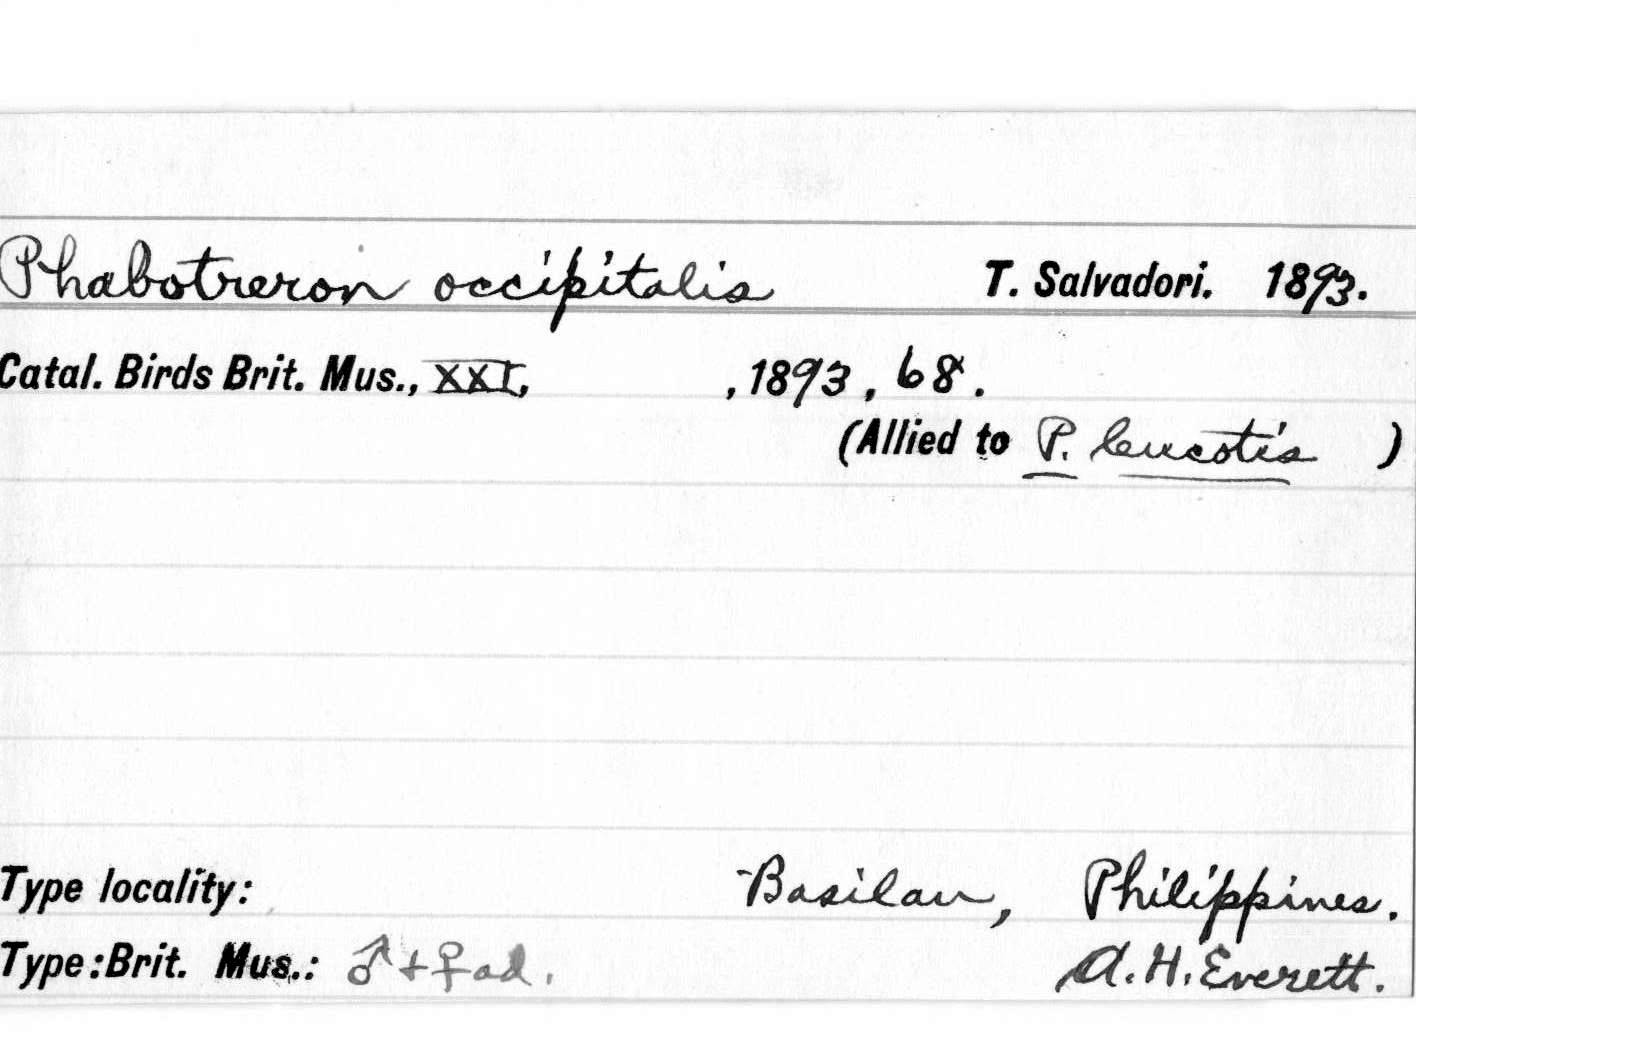 Phabotreron occipitalis T. Salvadori. 1893.
Catal. Birds Brit. Mus., XXI, , 1893, 68.
(Allied to P. leucotis )
Type locality: Basilan, Philippines.
Type: Brit. Mus.: ♂ + ♀ ad. A. H. Everett.